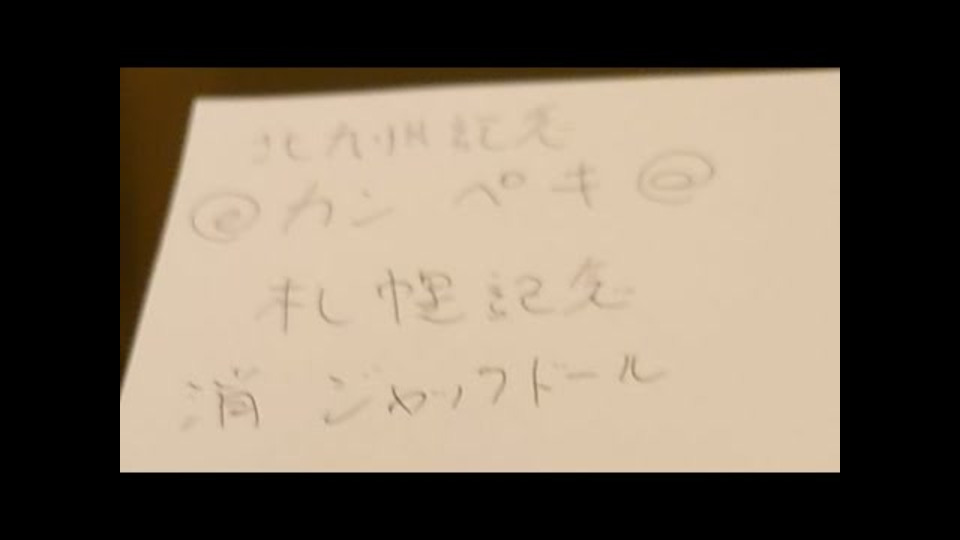 北九州記念
◎カンペキ◎
札幌記念
消 ジャックドール